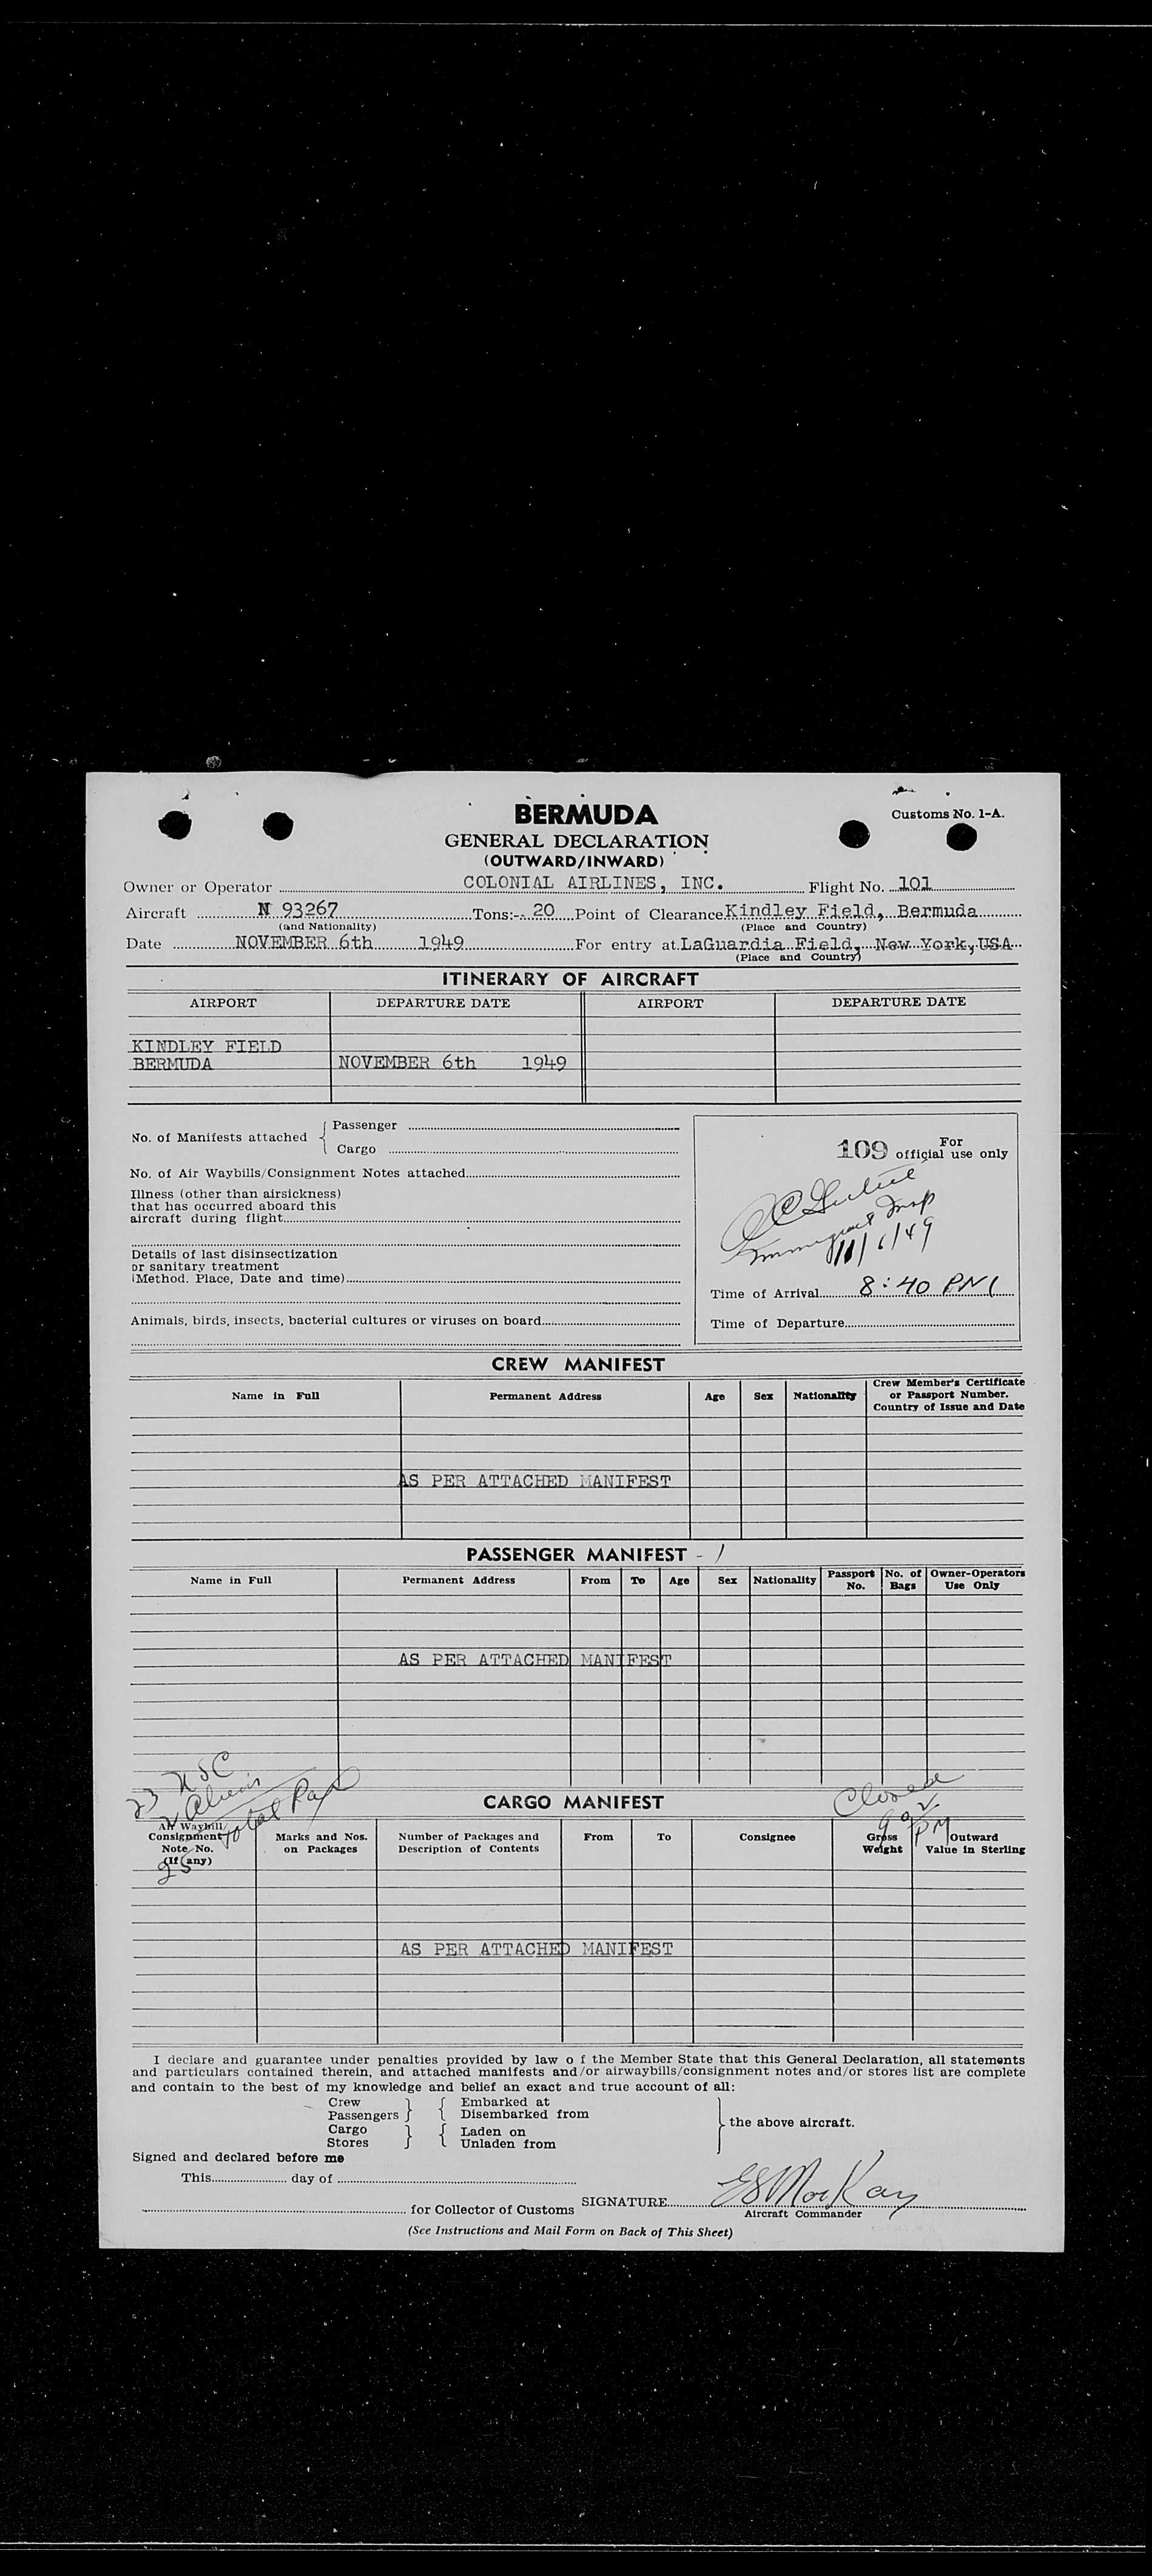 BERMUDA
Customs No. 1-A.
GENERAL DECLARATION
(OUTWARD/INWARD)
Owner or Operator COLONIAL AIRLINES, INC. Flight No. 101
Aircraft N 93267 Tons:- 20 Point of Clearance Kindley Field, Bermuda
(and Nationality) (Place and Country)
Date NOVEMBER 6th 1949 For entry at LaGuardia Field, New York, USA
(Place and Country)
ITINERARY OF AIRCRAFT
AIRPORT DEPARTURE DATE AIRPORT DEPARTURE DATE
KINDLEY FIELD
BERMUDA NOVEMBER 6th 1949
No. of Manifests attached { Passenger
Cargo
No. of Air Waybills/Consignment Notes attached
Illness (other than airsickness)
that has occurred aboard this
aircraft during flight
Details of last disinsectization
or sanitary treatment
(Method. Place, Date and time)
Animals, birds, insects, bacterial cultures or viruses on board
109 For
official use only
Immigrant Insp
11/6/49
Time of Arrival 8:40 PM
Time of Departure
CREW MANIFEST
Name in Full Permanent Address Age Sex Nationality Crew Member's Certificate
or Passport Number.
Country of Issue and Date
AS PER ATTACHED MANIFEST
PASSENGER MANIFEST - 1
Name in Full Permanent Address From To Age Sex Nationality Passport No. No. of Bags Owner-Operators Use Only
AS PER ATTACHED MANIFEST
23 USC
2 Aliens
Total Pax
25
Closed
9 02
PM
CARGO MANIFEST
Air Waybill/
Consignment
Note No.
(If any)
Marks and Nos.
on Packages
Number of Packages and
Description of Contents
From To Consignee
Gross
Weight
Outward
Value in Sterling
AS PER ATTACHED MANIFEST
I declare and guarantee under penalties provided by law o f the Member State that this General Declaration, all statements
and particulars contained therein, and attached manifests and/or airwaybills/consignment notes and/or stores list are complete
and contain to the best of my knowledge and belief an exact and true account of all:
Crew } { Embarked at
Passengers } { Disembarked from
Cargo } { Laden on
Stores } { Unladen from
} the above aircraft.
Signed and declared before me
This day of
for Collector of Customs SIGNATURE
Aircraft Commander
(See Instructions and Mail Form on Back of This Sheet)